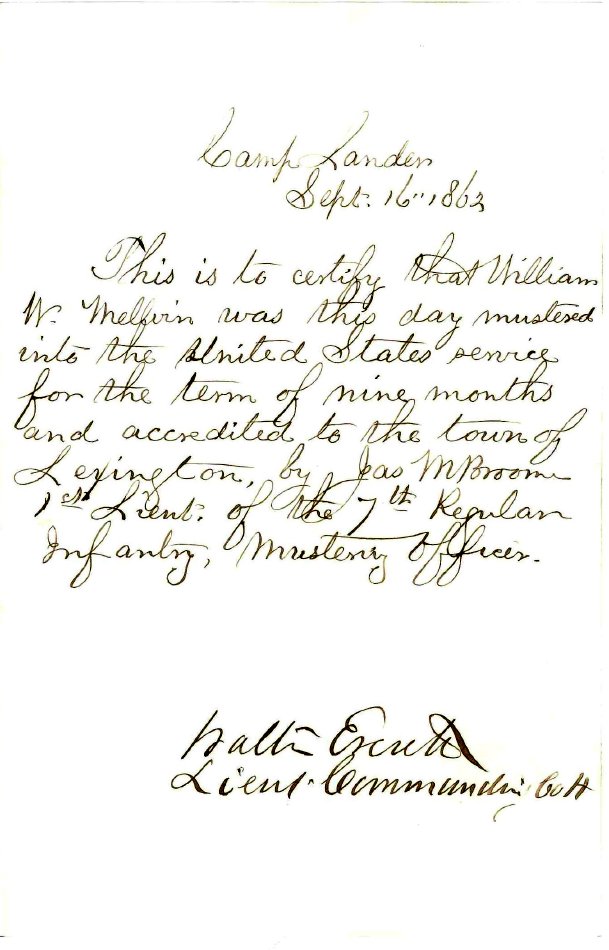 Camp Lander
Sept. 16" 1862
This is to certify that William
W. Melvin was this day mustered
into the United States service
for the term of nine months
and accredited to the town of
Lexington, by Jas M Broome
1st Lieut. of the 7th Regular
Infantry, Mustering Officer.
Walter Everett
Lieut. Commanding Co H